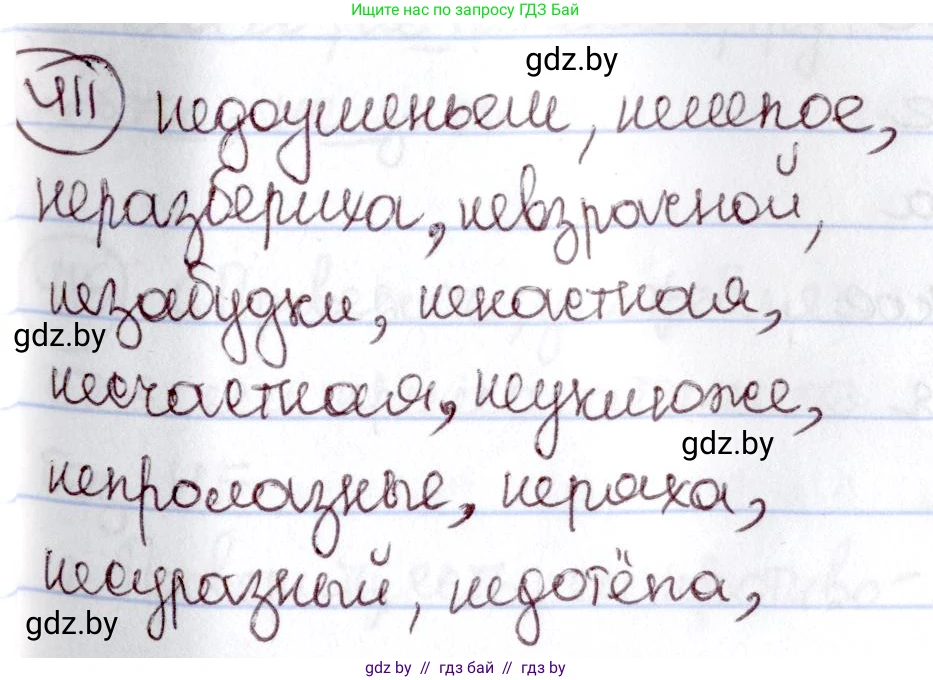 Ищите нас по запросу ГДЗ Бай
gdz.by
411 недоуменьем, нелепое,
неразбериха, невзрачной,
незабудки, ненастная,
gdz.by
несчастная, неуклюже,
gdz.by
непролазные, неряха,
несуразный, недотёпа,
gdz.by
gdz by // гдз бай // гдз by